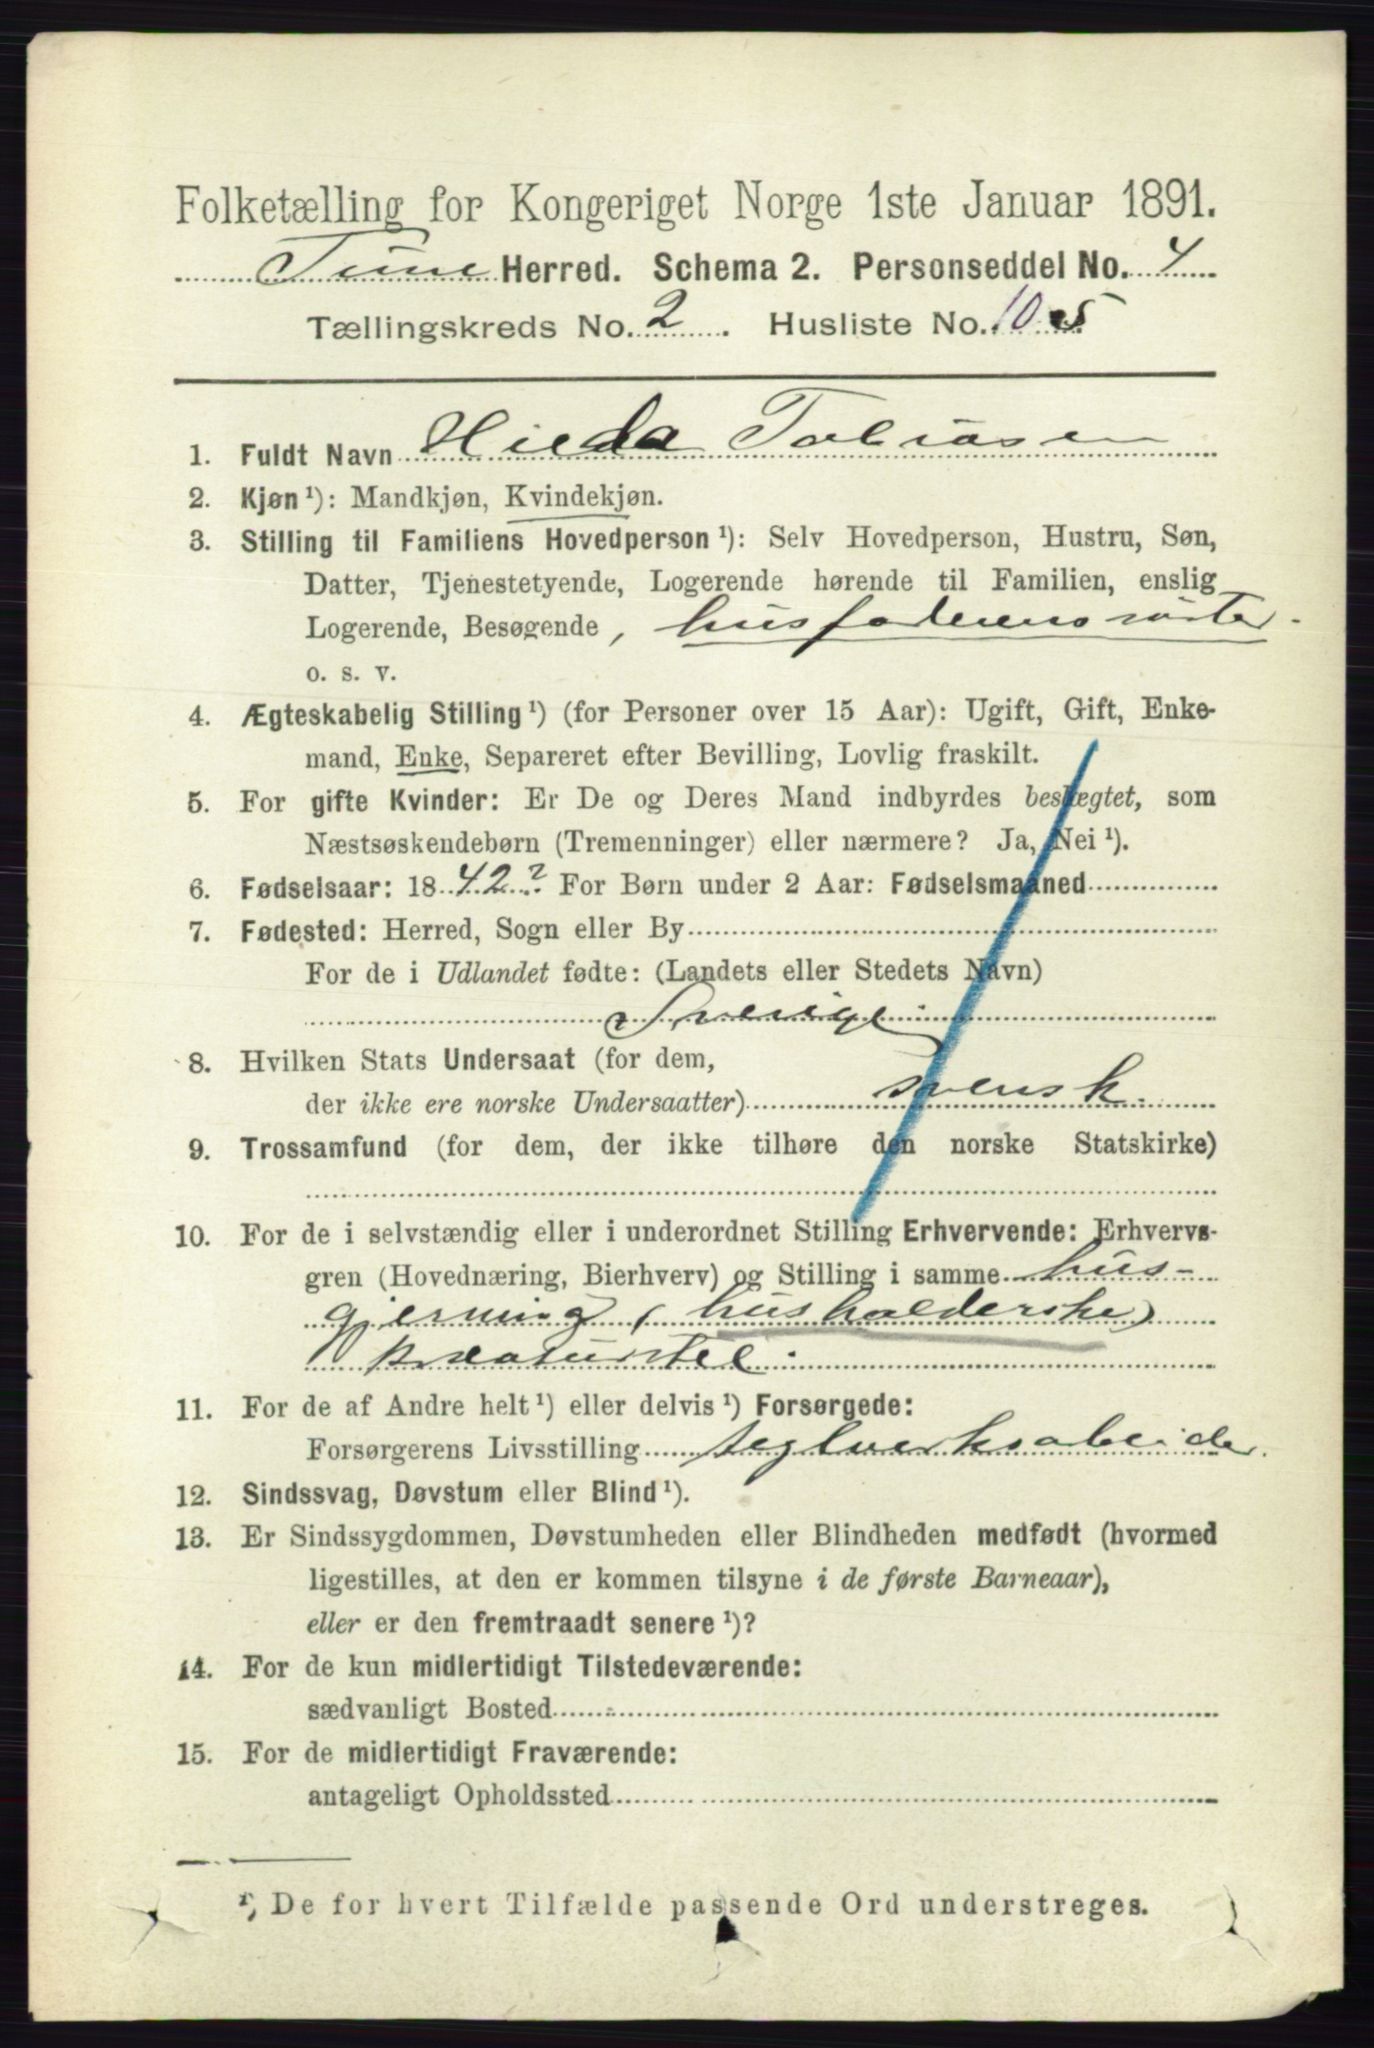 Folketælling for Kongeriget Norge 1ste Januar 1891.
Tune Herred. Schema 2. Personseddel No. 4
Tællingskreds No. 2. Husliste No. 105
1. Fuldt Navn Hilda Tobiasen
2. Kjøn ¹): Mandkjøn, Kvindekjøn.
3. Stilling til Familiens Hovedperson ¹): Selv Hovedperson, Hustru, Søn,
Datter, Tjenestetyende, Logerende hørende til Familien, enslig
Logerende, Besøgende, husfaderens søster.
o. s. v.
4. Ægteskabelig Stilling ¹) (for Personer over 15 Aar): Ugift, Gift, Enke-
mand, Enke, Separeret efter Bevilling, Lovlig fraskilt.
5. For gifte Kvinder: Er De og Deres Mand indbyrdes beslægtet, som
Næstsøskendebørn (Tremenninger) eller nærmere? Ja, Nei ¹).
6. Fødselsaar: 1842? For Børn under 2 Aar: Fødselsmaaned
7. Fødested: Herred, Sogn eller By
For de i Udlandet fødte: (Landets eller Stedets Navn)
Sverige
8. Hvilken Stats Undersaat (for dem,
der ikke ere norske Undersaatter) svensk.
9. Trossamfund (for dem, der ikke tilhøre den norske Statskirke)
10. For de i selvstændig eller i underordnet Stilling Erhvervende: Erhvervs-
gren (Hovednæring, Bierhverv) og Stilling i samme hus-
gjerning (husholderske)
kreaturstel
11. For de af Andre helt ¹) eller delvis ¹) Forsørgede:
Forsørgerens Livsstilling teglverksabeider.
12. Sindssvag, Døvstum eller Blind ¹).
13. Er Sindssygdommen, Døvstumheden eller Blindheden medfødt (hvormed
ligestilles, at den er kommen tilsyne i de første Barneaar),
eller er den fremtraadt senere ¹)?
14. For de kun midlertidigt Tilstedeværende:
sædvanligt Bosted
15. For de midlertidigt Fraværende:
antageligt Opholdssted
¹) De for hvert Tilfælde passende Ord understreges.